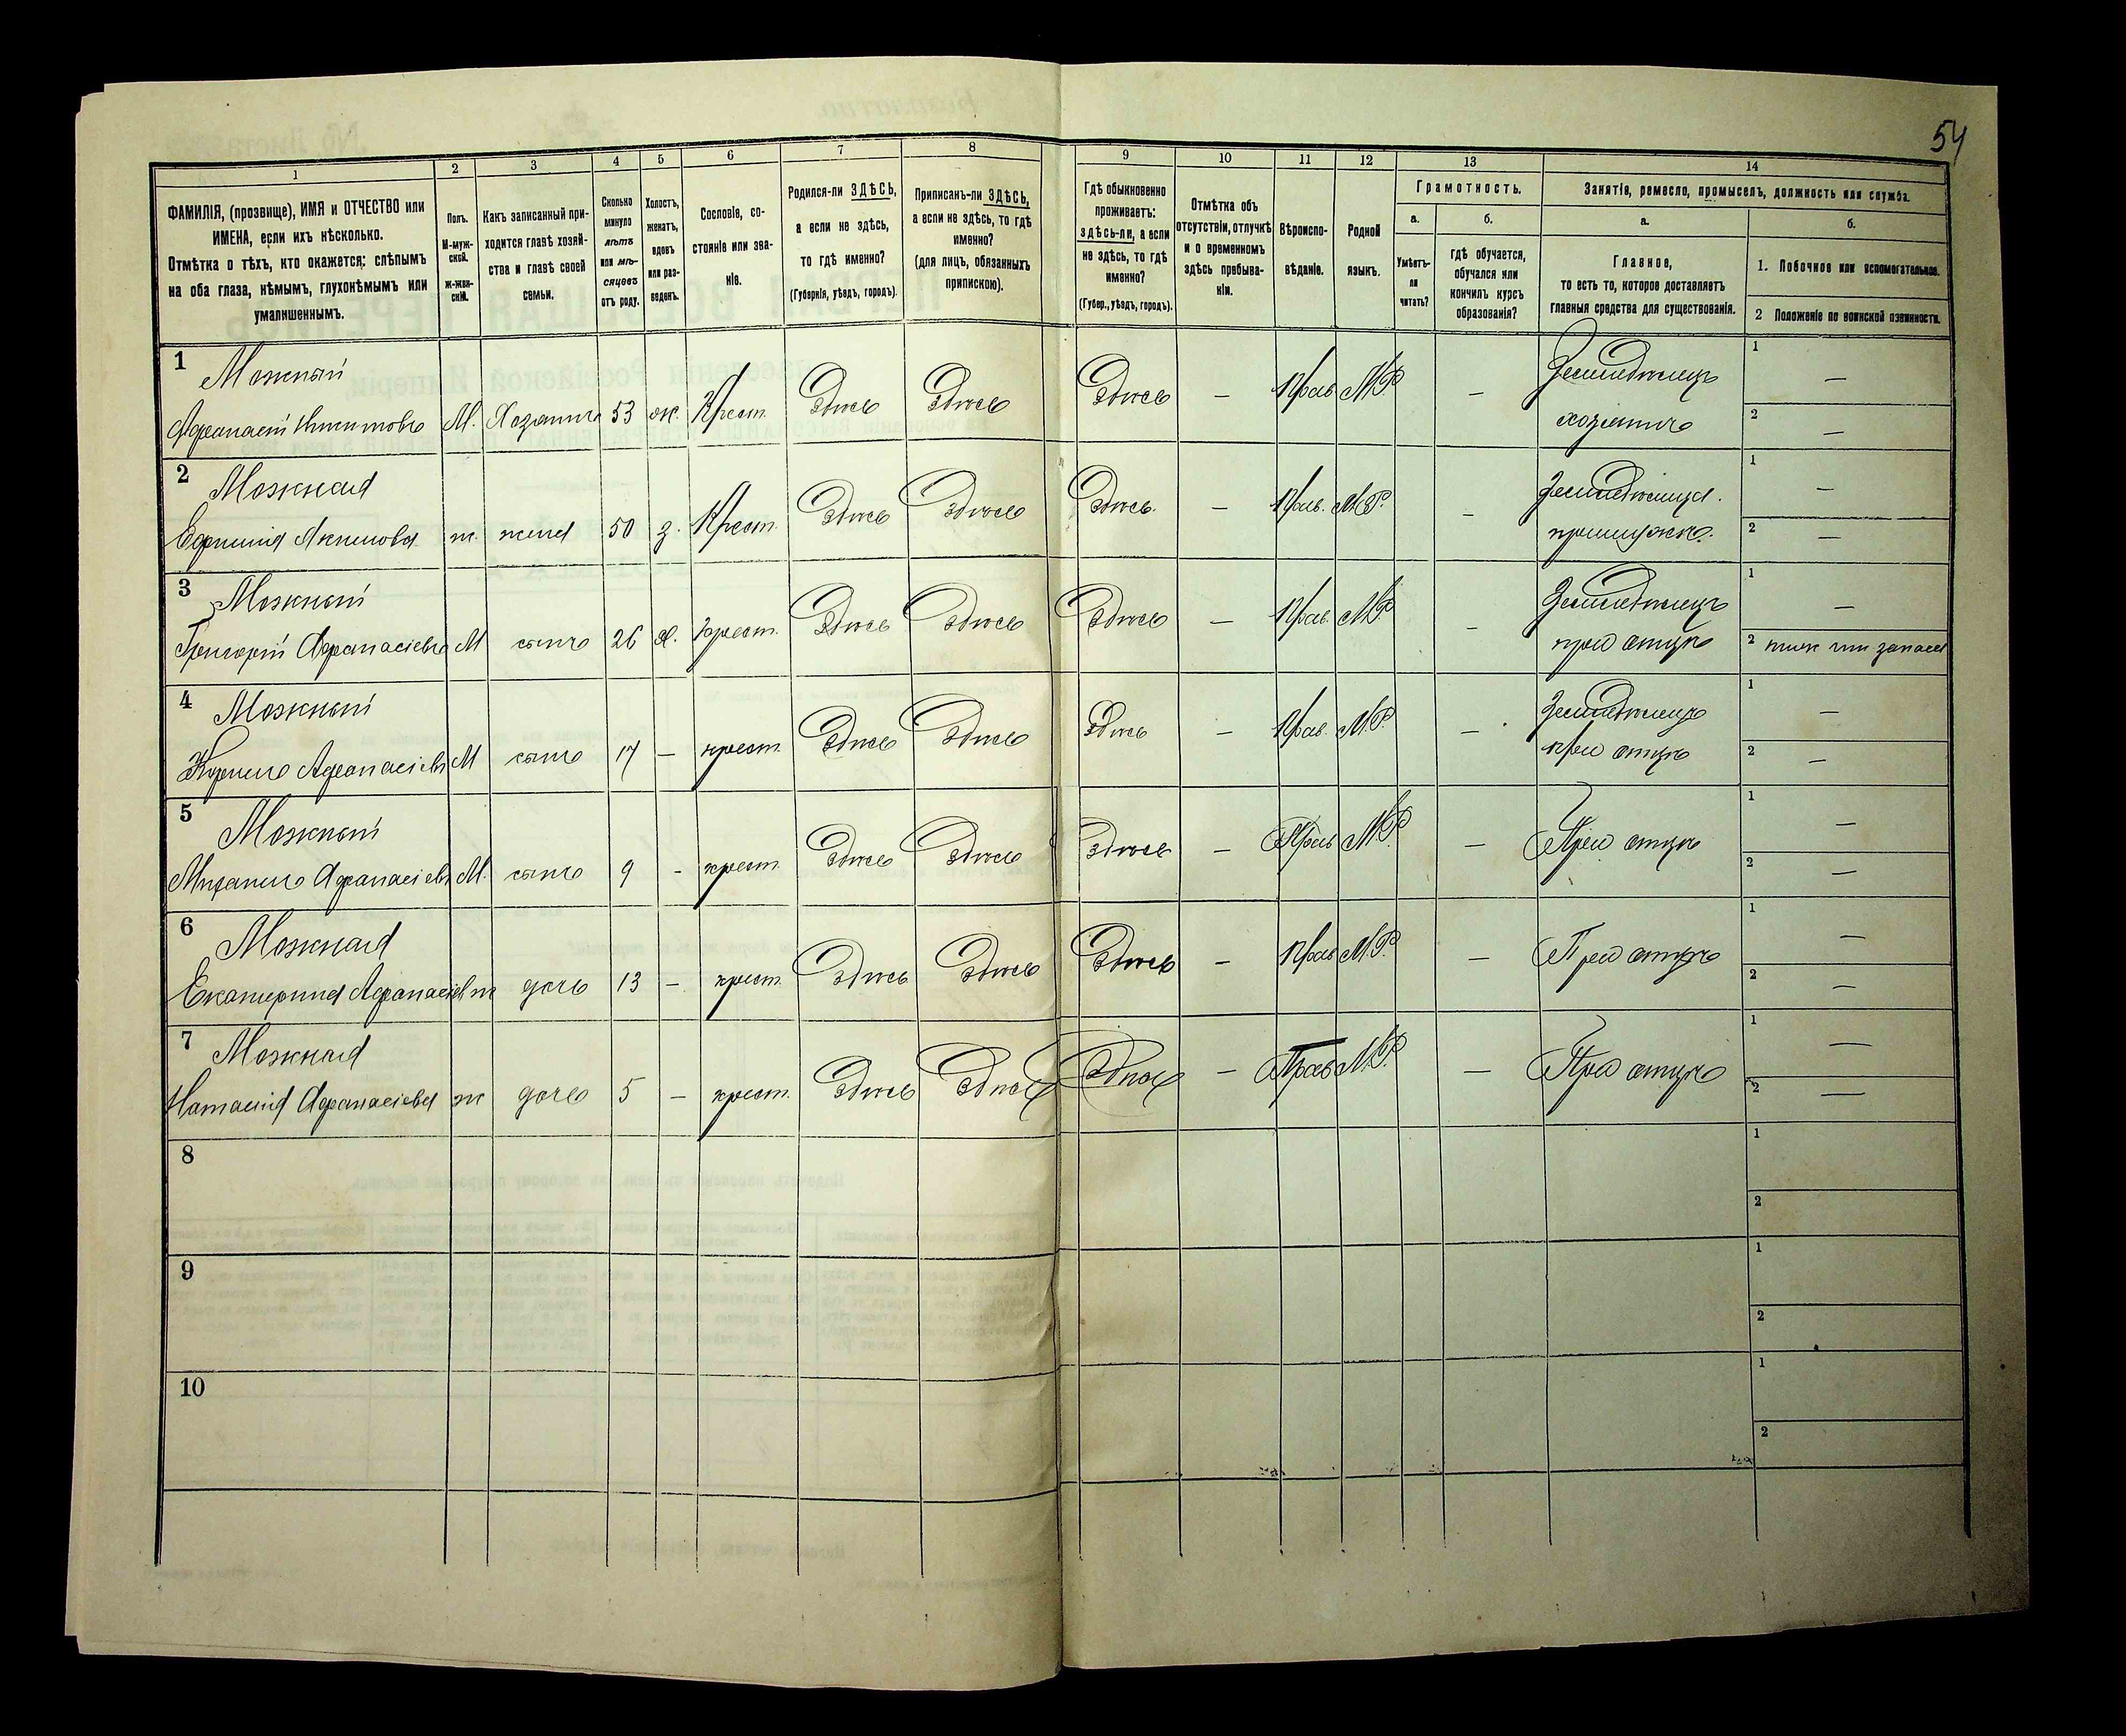 54
1 2 3 4 5 6 7 8 9 10 11 12 13 14
ФАМИЛІЯ, (прозвище), ИМЯ и ОТЧЕСТВО или
ИМЕНА, если ихъ нѣсколько.
Отмѣтка о тѣхъ, кто окажется: слѣпымъ
на оба глаза, нѣмымъ, глухонѣмымъ или
умалишеннымъ.
Полъ.
М-муж-
ской.
ж-жен-
скій.
Какъ записанный при-
ходится главѣ хозяй-
ства и главѣ своей
семьи.
Сколько
минуло
лѣтъ
или мѣ-
сяцевъ
отъ роду.
Холостъ,
женатъ,
вдовъ
или раз-
веденъ.
Сословіе, со-
стояніе или зва-
ніе.
Родился-ли ЗДѢСЬ,
а если не здѣсь,
то гдѣ именно?
(Губернія, уѣздъ, городъ).
Приписанъ-ли ЗДѢСЬ,
а если не здѣсь, то гдѣ
именно?
(для лицъ, обязанныхъ
припискою).
Гдѣ обыкновенно
проживаетъ:
здѣсь-ли, а если
не здѣсь, то гдѣ
именно?
(Губер., уѣздъ, городъ).
Отмѣтка объ
отсутствіи, отлучкѣ
и о временномъ
здѣсь пребыва-
ніи.
Вѣроиспо-
вѣданіе.
Родной
языкъ.
Грамотность.
а.
Умѣетъ-
ли
читать?
б.
Гдѣ обучается,
обучался или
кончилъ курсъ
образованія?
Занятіе, ремесло, промыселъ, должность или служба.
а.
Главное,
то есть то, которое доставляетъ
главныя средства для существованія.
б.
1. Побочное или вспомогательное.
2 Положеніе по воинской повинности.
1 Можный Земледѣлецъ 1 —
Афанасій Никитовъ М. Хозяинъ 53 ж. Крест. Здѣсь Здѣсь Здѣсь — Прав М.Р — хозяинъ 2 —
2 Можная Земледѣлица. 1 —
Ефимія Акимова ж. жена 50 з. Крест. Здѣсь Здѣсь Здѣсь. — Прав. М.Р. — при мужѣ. 2 —
3 Можный Земледѣлецъ 1 —
Григорій Афанасіевъ М сынъ 26 х. крест. Здѣсь Здѣсь Здѣсь — Прав. М.Р — при отцѣ 2
4 Можный Земледѣлецъ 1 —
Афанасіевъ М сынъ 17 — крест. Здѣсь Здѣсь Здѣсь — Прав. М.Р. — при отцѣ 2 —
5 Можный 1 —
Михаилъ Афанасіевъ М. сынъ 9 - крест. Здѣсь Здѣсь Здѣсь — Прав М.Р. — При отцѣ 2 —
6 Можная 1 —
Екатерина Афанасіев ж дочь 13 — крест. Здѣсь Здѣсь Здѣсь — Прав М.Р. — При отцѣ 2 —
7 Можная 1 —
Наталія Афанасіева ж дочь 5 — крест. Здѣсь Здѣсь Здѣсь — Прав М.Р. — При отцѣ 2 —
8 1
2
9 1
2
10 1
2